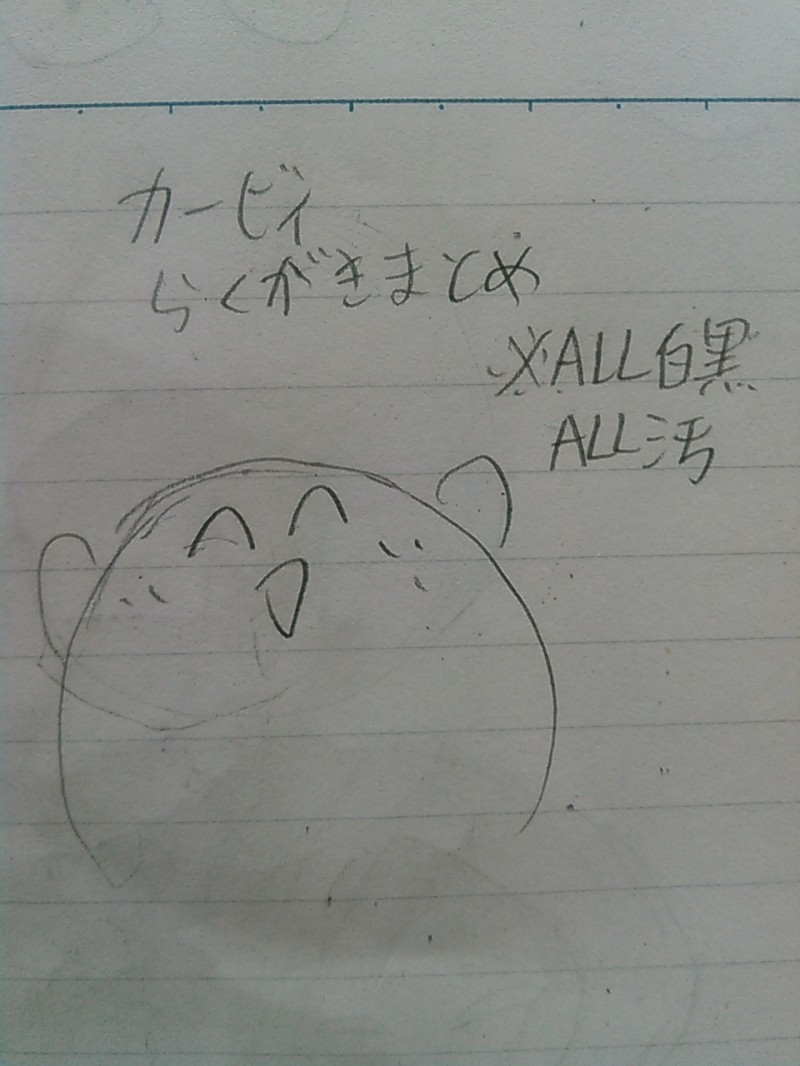 カービィ
らくがきまとめ
※ALL白黒
ALL汚